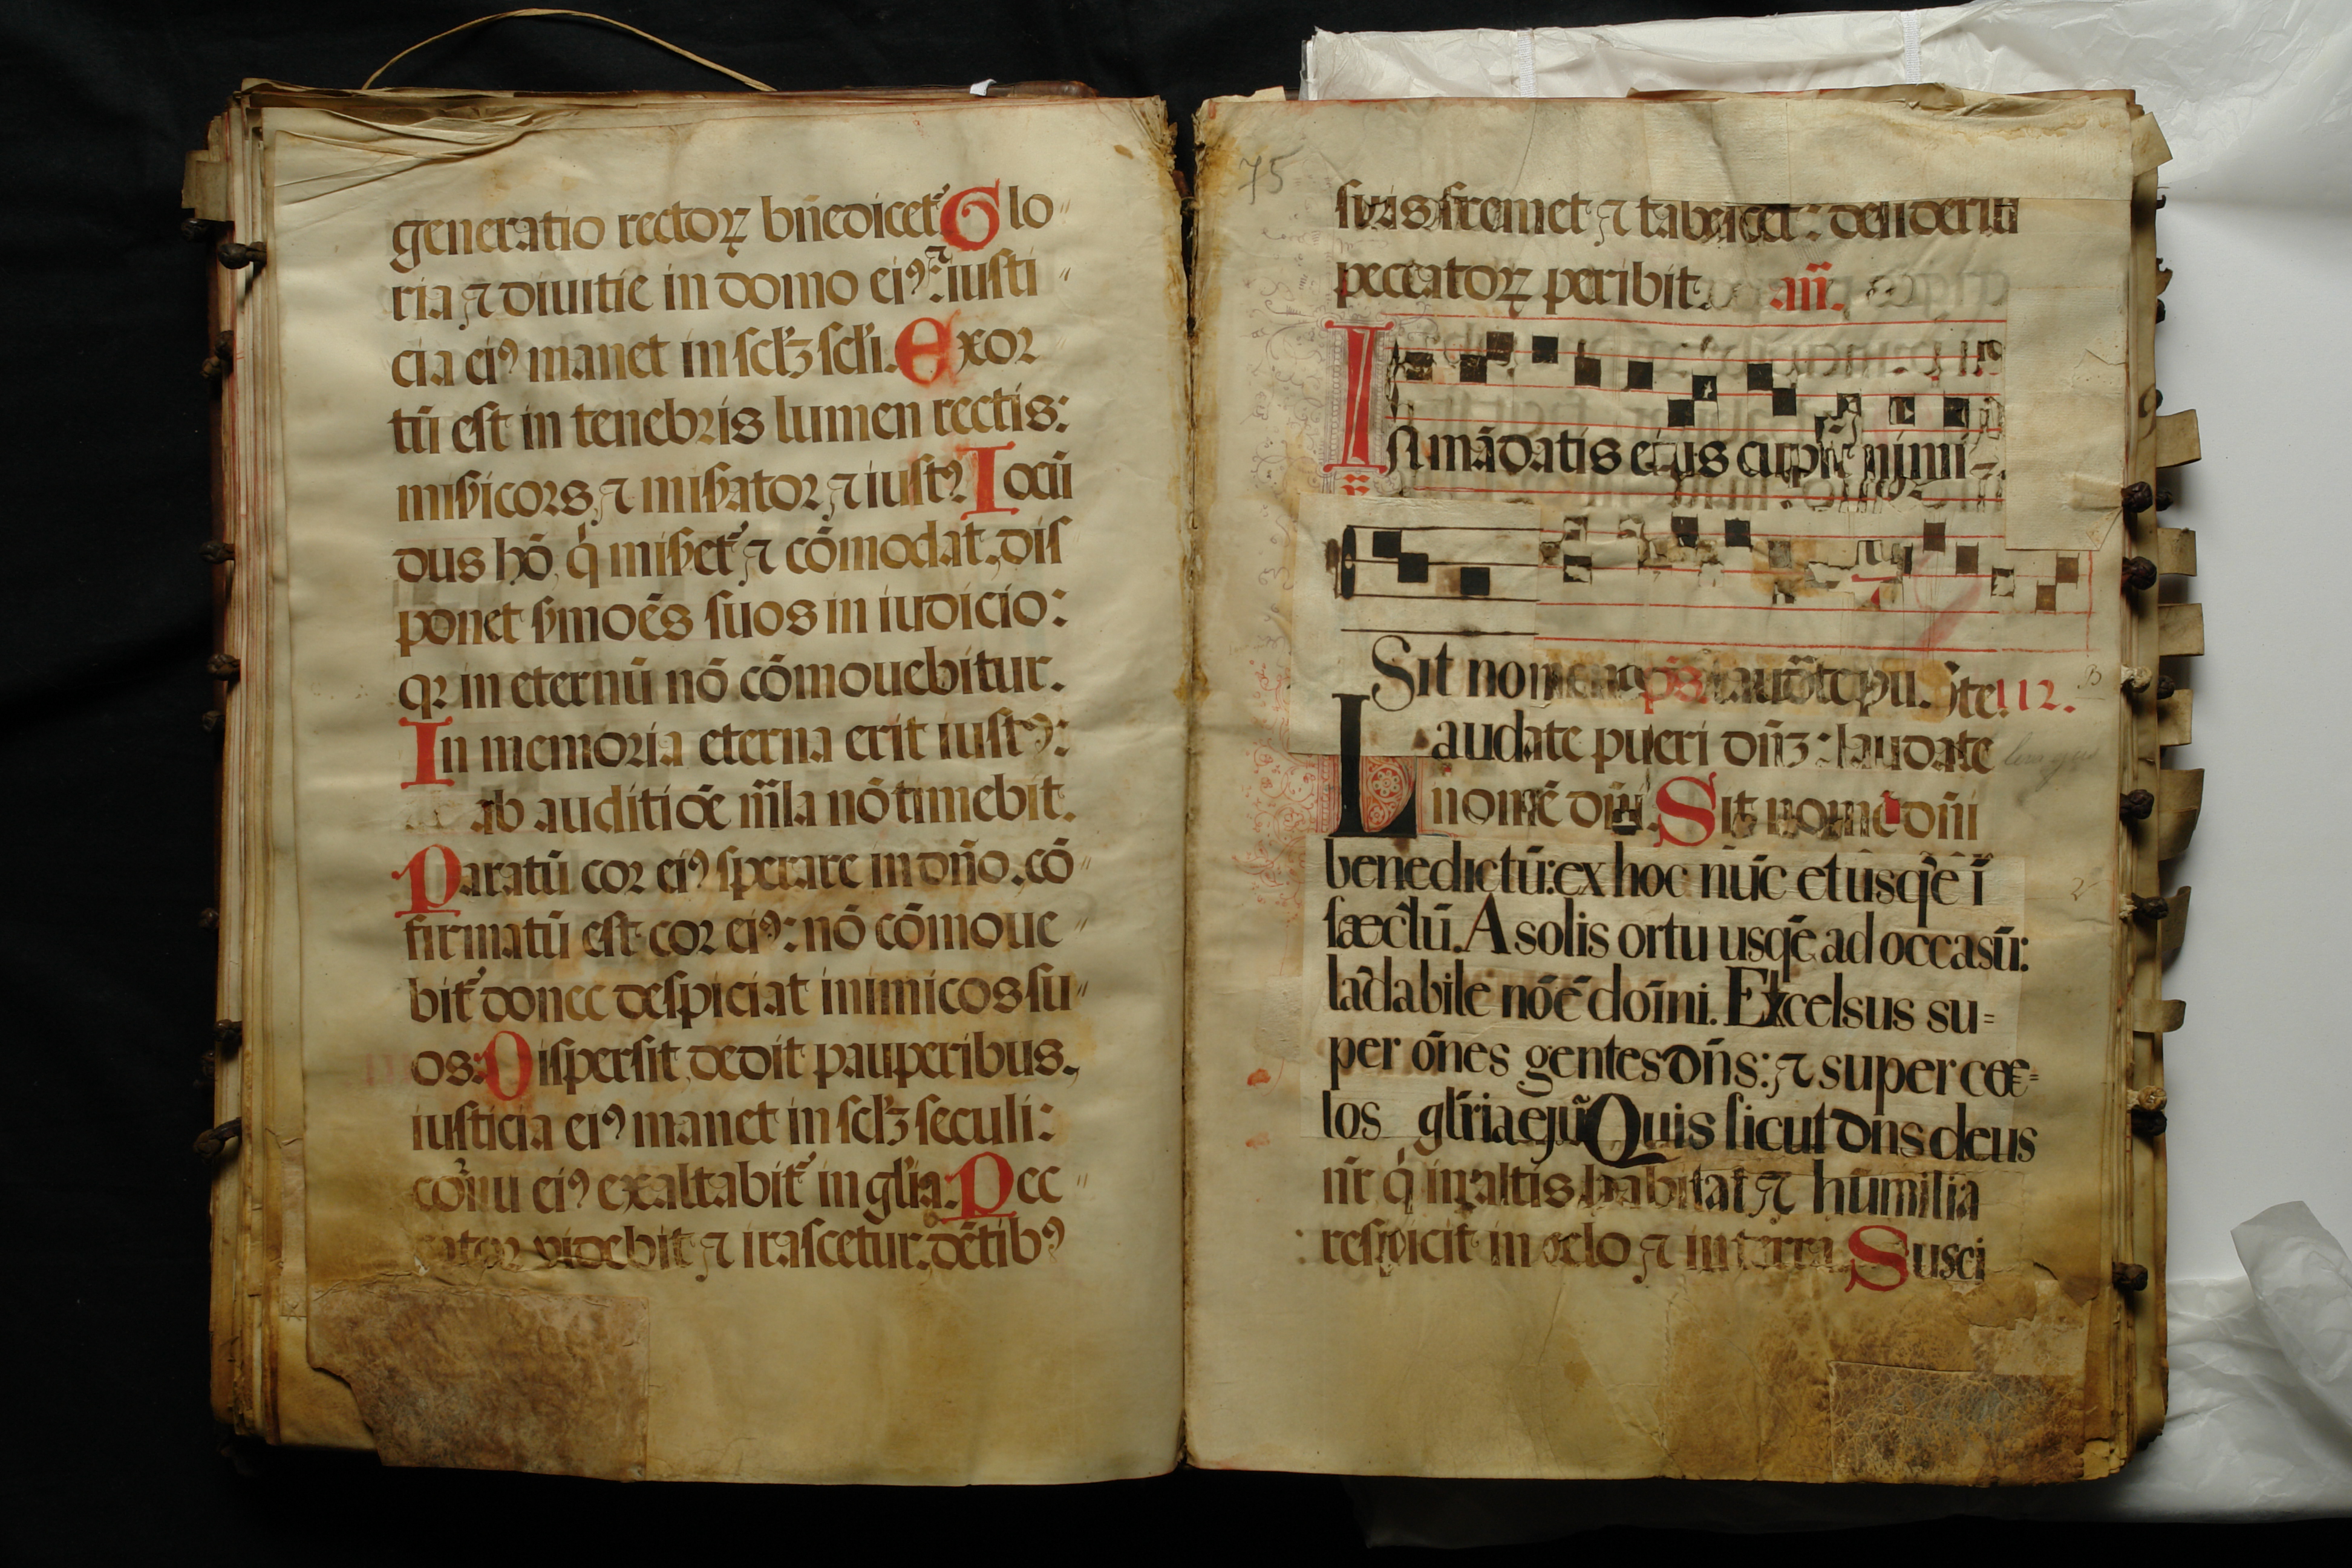 generatio rectoꝝ bn̄edicet᷑ Glo〃
ria ⁊ diuitie in domo eiꝰ: ⁊ iusti〃
cia eiꝰ manet in scl̄ꝫ scl̄i. Exor
tū est in tenebris lumen rectis:
mis̄icors, ⁊ mis̄ator ⁊ iustꝰ. Iocū
dus hō, q̇ mis̄et᷑ ⁊ cōmodat, dis
ponet s̄moēs suos in iudicio:
qꝛ in eternū nō cōmouebitur.
In memoria eterna erit iustꝰ:
ab auditiōe m̄la nō timebit.
Paratū cor eiꝰ sperare in dn̄o, cō〃
firmatū est cor eiꝰ: nō cōmoue〃
bit᷑ donec despiciat inimicos su〃
os: Dispersit, dedit pauperibus.
iusticia eiꝰ manet in scl̄ꝫ seculi:
cornu eiꝰ exaltabit᷑ in gl̄ia. Pec〃
cator videbit ⁊ irascetur, dētibꝰ
75
suis fremet ⁊ tabescet: desideriū
peccatoꝝ peribit. an̄.
In mādatis ejus cupit nimi-
Sit nomen ps̄ 112.
Laudate pueri dn̄ꝫ: laudate
nomē dn̄i. Sit nomē dn̄i
benedictū: ex hoc nūc et usq̄e ī
sæcl̄ū. A solis ortu usq̄e ad occasū:
laādabile nōē doīni. Excelsus su=
per ōnes gentes dn̄s: ⁊ super cœ=
los gl̄ria ejū Quis sicut dn̄s deus
nr̄ q̇ in altis habitat ⁊ hūmilia
respicit in celo ⁊ in terra. Susci